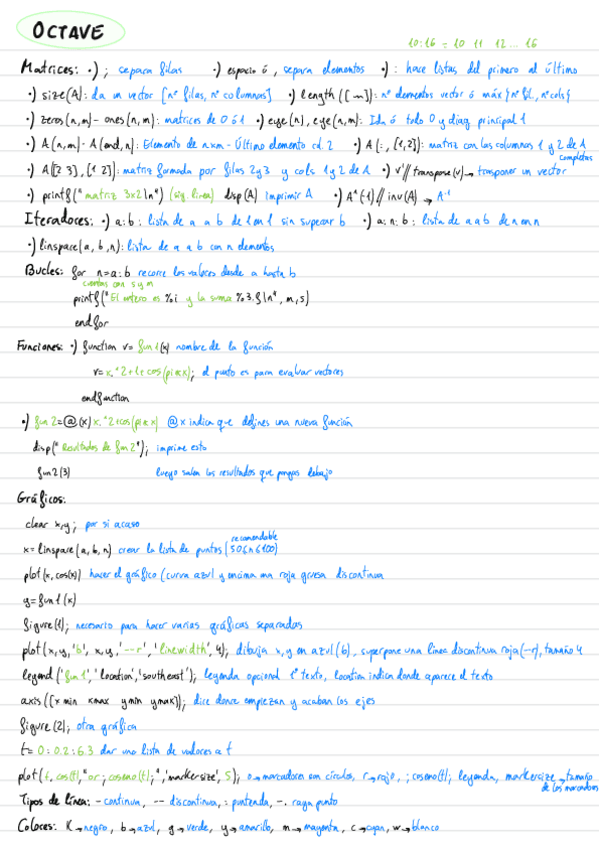 OCTAVE
10:16 = 10 11 12 ... 16
Matrices: •) ; separa filas •) espacio ó , separa elementos •) : hace listas del primero al último
•) size(A): da un vector [nº filas, nº columnas] •) length([...]): nº elementos vector ó máx{nº fil, nº cols}
•) zeros(n,m) - ones(n,m): matrices de 0 ó 1 •) eye(n), eye(n,m): Id ó todo 0 y diag principal 1
•) A(n,m) - A(end,n): Elemento de n×m - Último elemento col. 2 •) A(:,[1,2]): matriz con las columnas 1 y 2 de A completas
•) A([2 3],[1 2]): matriz formada por filas 2 y 3 y cols 1 y 2 de A •) v' // transpose(v) → transponer un vector
•) printf("matriz 3x2\n") (sig. linea) disp(A) imprimir A •) A^(-1) // inv(A) → A⁻¹
Iteradores: •) a:b: lista de a a b de 1 en 1 sin superar b •) a:n:b: lista de a a b de n en n
•) linspace(a,b,n): lista de a a b con n elementos
Bucles: for n=a:b recorre los valores desde a hasta b
cuentas con s y m
printf("El entero es %i y la suma %3.f\n", m,s)
endfor
Funciones: •) function v= fun1(x) nombre de la función
v=x.^2+1+cos(pi*x); el punto es para evaluar vectores
endfunction
•) fun2=@(x) x.^2+cos(pi*x) @x indica que defines una nueva función
disp("Resultados de fun2"); imprime esto
fun2(3) luego salen los resultados que pongas debajo
Gráficos:
clear x,y; por si acaso
x=linspace(a,b,n) crear la lista de puntos (50≤n≤100) recomendable
plot(x,cos(x)) hacer el gráfico (curva azul y encima una roja gruesa discontinua
y=fun1(x)
figure(1); necesario para hacer varias gráficas separadas
plot(x,y,'b', x,y,'--r','linewidth',4); dibuja x,y en azul(b), superpone una linea discontinua roja(--r), tamaño 4
legend('fun1','location','southeast'); leyenda opcional 1º texto, location indica donde aparece el texto
axis([xmin xmax ymin ymax]); dice donde empiezan y acaban los ejes
figure(2); otra gráfica
t= 0:0.2:6.3 dar una lista de valores a t
plot(t,cos(t),"or;coseno(t);",'markersize',5); o→marcadores son círculos, r→rojo, ;coseno(t); leyenda, markersize→tamaño de los marcadores
Tipos de línea: - continua, -- discontinua, : punteada, -. raya punto
Colores: K→negro, b→azul, g→verde, y→amarillo, m→magenta, c→cyan, w→blanco